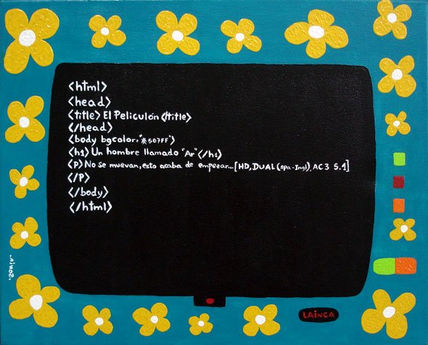 <html>
<head>
<title> El Peliculón </title>
</head>
<body bgcolor="#507FF">
<h1> Un hombre llamado "Ar" </h1>
<p> No se muevan, esto acaba de empezar... [HD, DUAL (spa-Ing), AC3 5.1]
</p>
</body>
</html>
LAiNCA